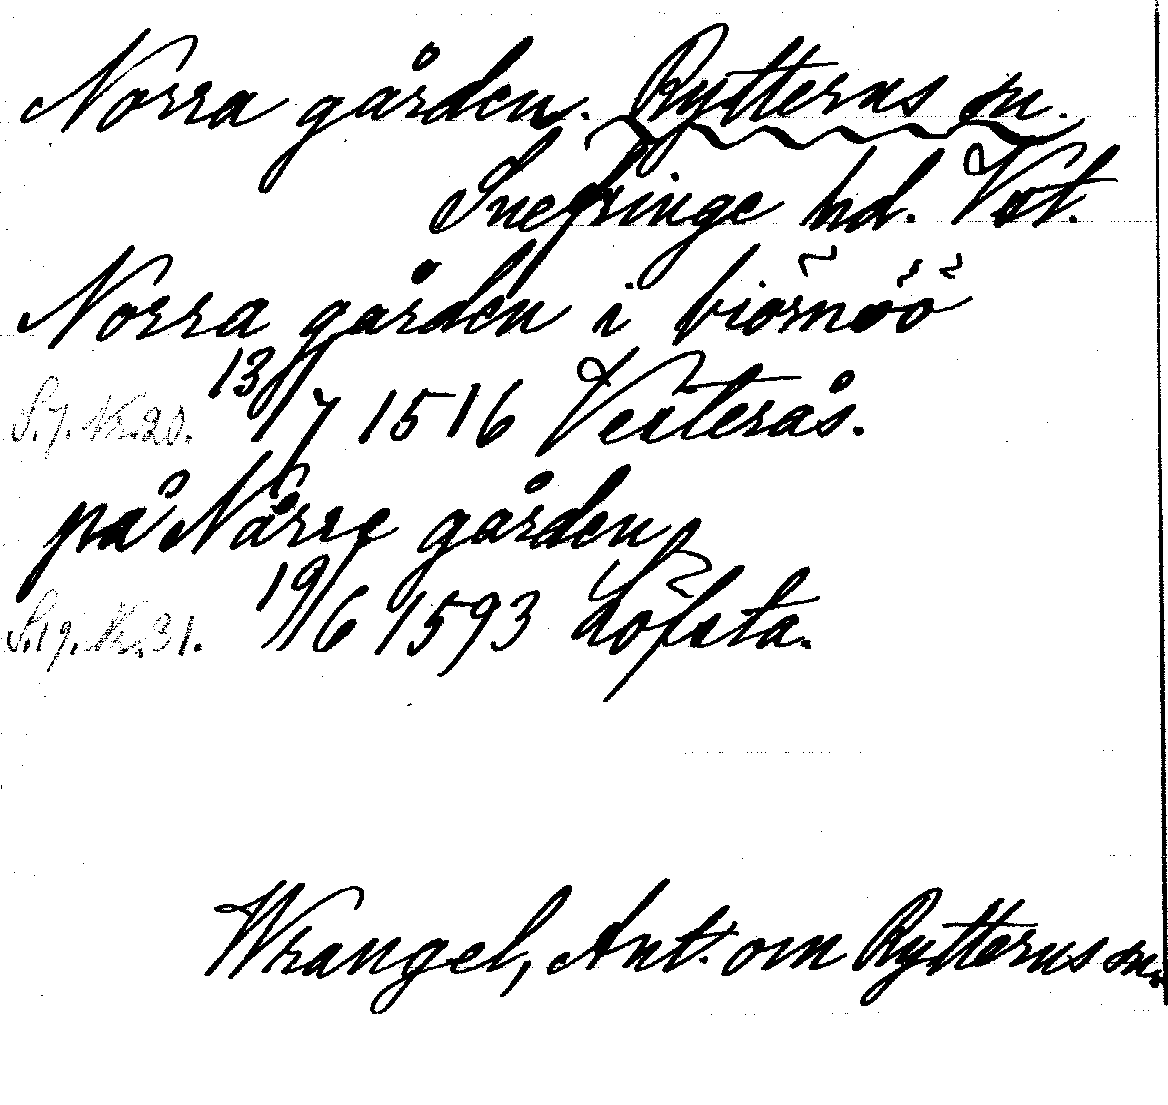 Norra gården. Rytterns sn.
Snefringe hd. Vstm.
Norra gården i biörnöö
S.7. Nr.20. 13/7 1516 Vesterås.
på Nårre gården
S.19. Nr.31. 19/6 1593 Löfsta.
Wrangel, Ant. om Rytterns sn.